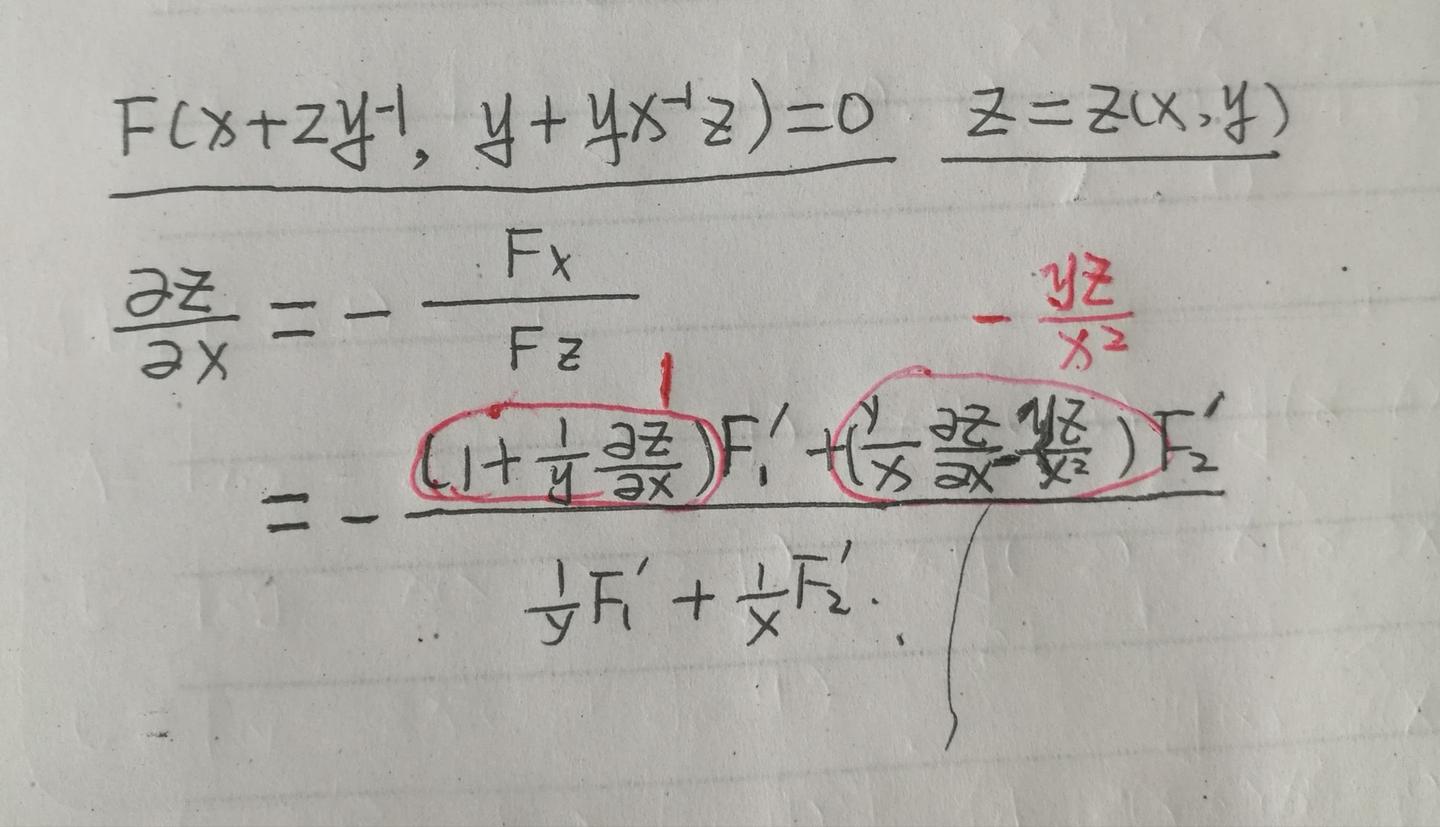 F(x+zy⁻¹, y+yx⁻¹z)=0 z=z(x,y)
∂z/∂x = - Fx/Fz - yz/x²
1
= - ((1+1/y ∂z/∂x)F₁′ + (y/x ∂z/∂x - yz/x²)F₂′)/(1/y F₁′ + 1/x F₂′).